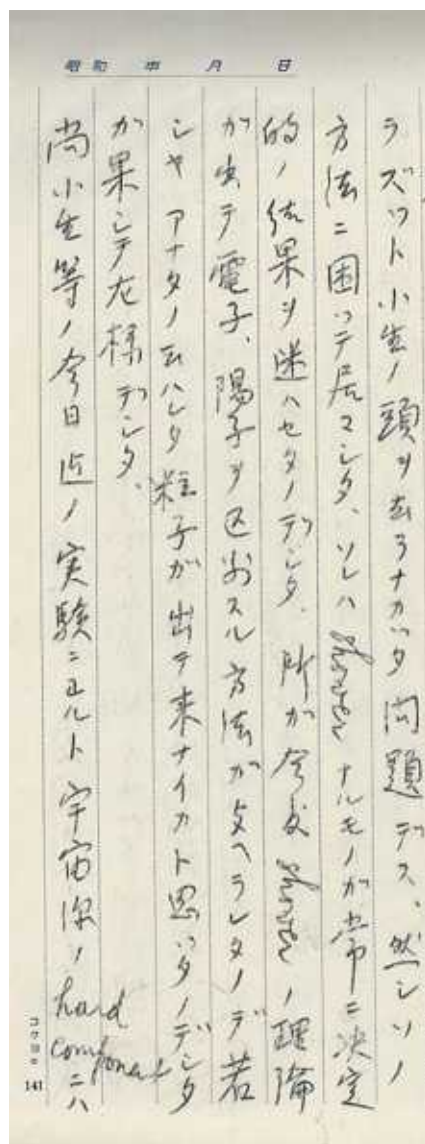 昭和 年 月 日
ラズット小生ノ頭ヲ去ラナカッタ問題デス、然シソノ
方法ニ困ッテ居マシタ、ソレハ shower ナルモノガ常ニ決定
的ノ結果ヲ迷ハセタノデシタ、所が今度 shower ノ理論
が出テ電子、陽子ヲ区別スル方法が与ヘラレタノデ若
シヤアナタノ云ハレタ粒子が出テ来ナイカト思ッタノデシタ
が果シテ左様デシタ、
尚小生等ノ今日迄ノ実験ニヨルト宇宙線ノ hard component ニハ
コクヨ
141